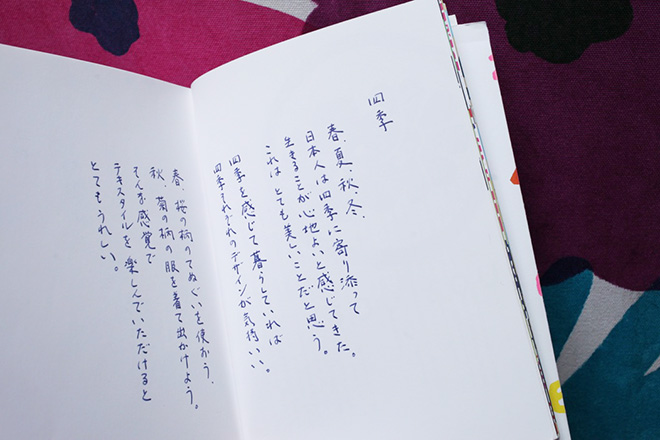 四季
春、夏、秋、冬、
日本人は四季に寄り添って
生きることが心地よいと感じてきた。
これは とても美しいことだと思う。
四季を感じて暮らしていれば
四季それぞれのデザインが気持いい。
春、桜の柄のてぬぐいを使おう、
秋、菊の柄の服を着て出かけよう。
そんな感覚で
テキスタイルを 楽しんでいただけると
とてもうれしい。